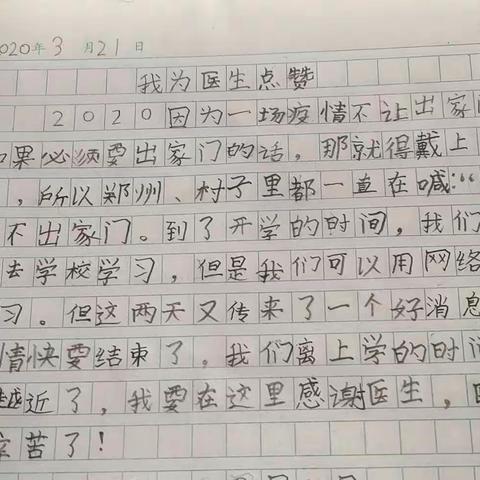 2020年3月21日
我为医生点赞
2020因为一场疫情不让出家门
如果必须要出家门的话，那就得戴上
，所以郑州、村子里都一直在喊：“
不出家门。到了开学的时间，我们
去学校学习，但是我们可以用网络
习。但这两天又传来了一个好消息
情快要结束了，我们离上学的时间
越近了，我要在这里感谢医生，医
辛苦了！